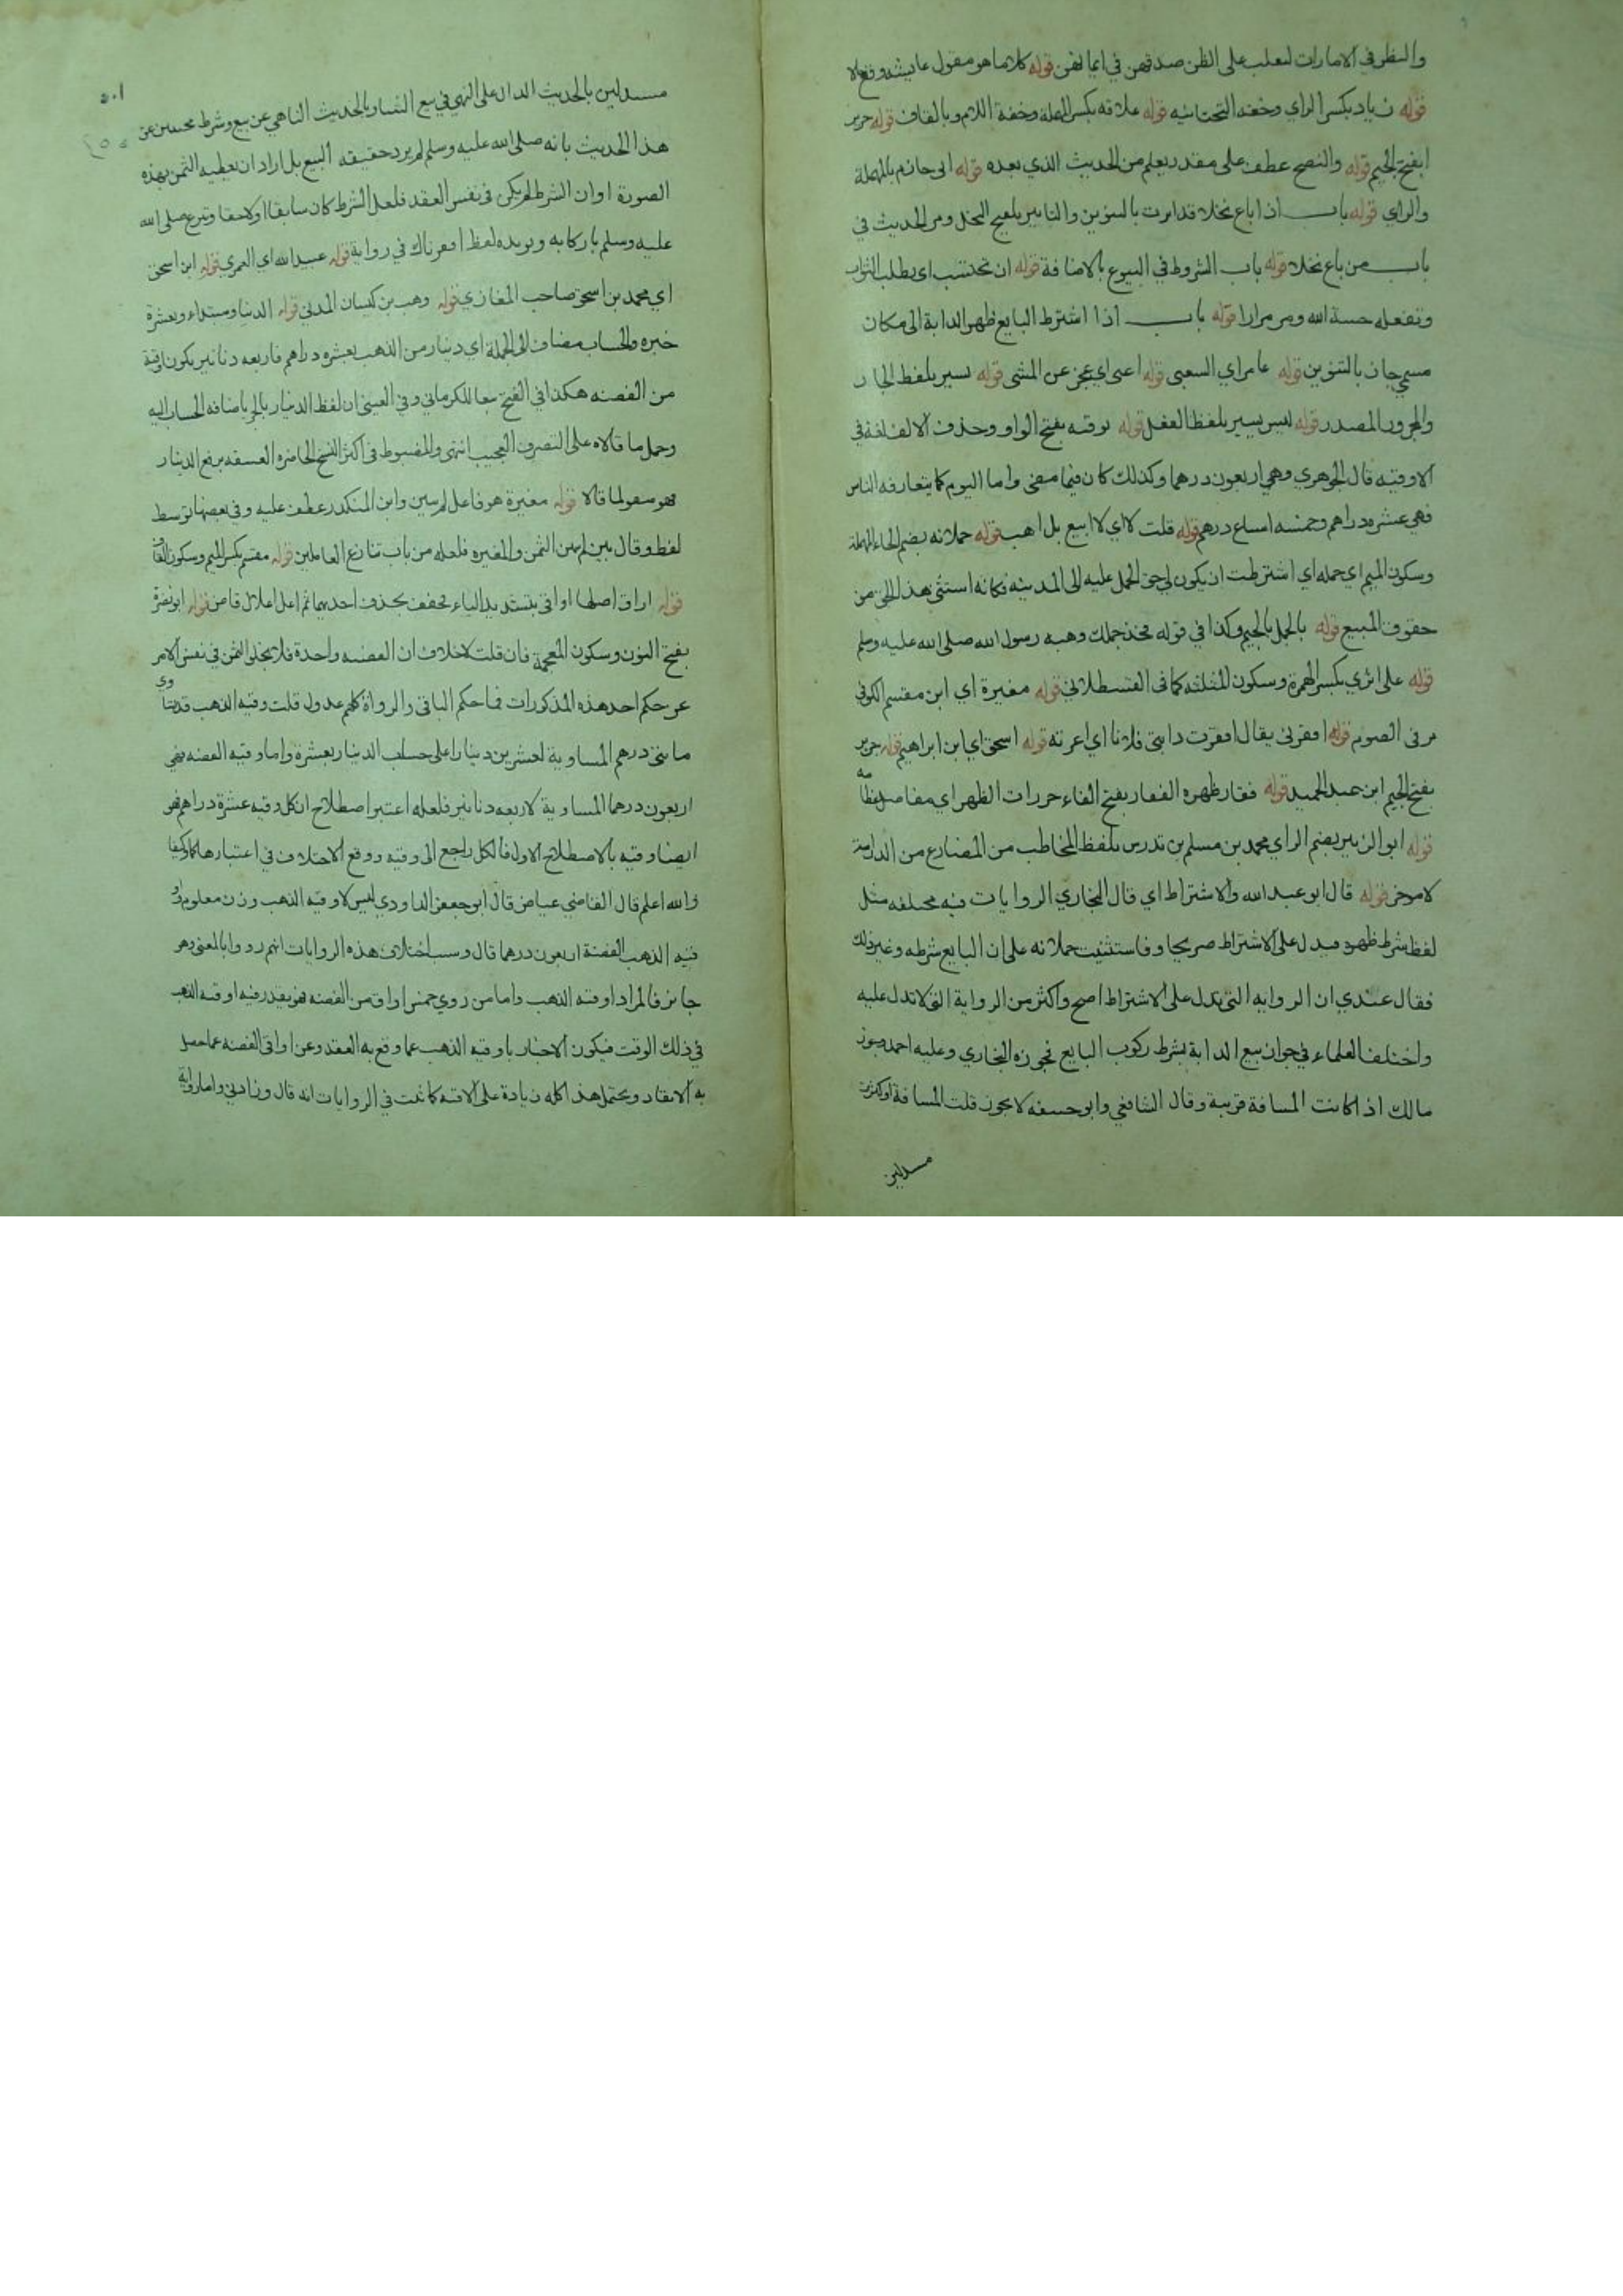 والنظر في الامارات لتغلب على الظن صدقهن في ايمانهن قوله كلاهما هو مقول عايشه وقع لا
قوله زياد بكسر الزاي وخفه التحتانيه قوله علاقه بكسر المهملة وخفة اللام وبالقاف قوله جرير
بفتح الجيم قوله والنصح عطف على مقدر يعلم من الحديث الذي بعده قوله ابي حازم بالمهملة
والزاي قوله باب اذا باع نخلا قد ابرت بالتنوين والتابير تلقيح النخل ومر الحديث في
باب من باع نخلا قوله باب الشروط في البيوع بالاضافة قوله ان تحتسب اى يطلب الثواب
وتفعله حسبة الله ومر مرارا قوله باب اذا اشترط البايع ظهر الدابة الى مكان
مسمي جاز بالتنوين قوله عامر اي الشعبي قوله اعيى اي عجز عن المشى قوله بسير بلفظ الجار
والمجرور المصدر قوله ليس يسير بلفظ الفعل قوله بوقيه بفتح الواو وحذف الالف لغة في
الاوقيه قال الجوهري وهي اربعون درهما وكذلك كان فيما مضى واما اليوم كما يتعارفه الناس
فهي عشره دراهم وخمسه اسباع درهم قوله قلت لا اي لا ابيع بل اهب قوله حملانه بضم الحاء المهملة
وسكون الميم اي حمله اي اشترطت ان يكون لي حق الحمل عليه الى المدينه فكانه استثنى هذا الحق من
حقوق المبيع قوله بالجمل بالجيم وكذا في قوله فخذ جملك وهبه رسول الله صلى الله عليه وسلم
قوله على اثري بكسر الهمزة وسكون المثلثه كما فى القسطلانى قوله مغيرة اي ابن مقسم الكوفي
مر فى الصوم قوله افقرنى يقال افقرت دابتى فلانا اي اعرته قوله اسحق اي ابن ابراهيم قوله جرير
بفتح الجيم ابن عبد الحميد قوله فقار ظهره الفقار بفتح الفاء خرزات الظهر اي مفاصل عظامه
قوله ابو الزبير بضم الزاي محمد بن مسلم بن تدرس بلفظ المخاطب من المضارع من الدراسة
لا مر خى قوله قال ابو عبد الله والاشتراط اي قال البخاري الروايات فيه مختلفه مثل
لفظ شرط ظهره فيدل على الاشتراط صريحا وفاستثنيت حملانه على ان البايع شرطه وغير ذلك
فقال عندي ان الروايه التى تدل على الاشتراط اصح واكثر من الرواية التى لا تدل عليه
واختلف العلماء في جواز بيع الدابة بشرط ركوب البايع فجوزه البخاري وعليه احمد وجوز
مالك اذا كانت المسافة قريبة وقال الشافعي وابو حنيفه لا يجوز قلت المسافة او كثرت
مستدلين
٥٠١
مستدلين بالحديث الدال على النهي في بيع الثنيا وبالحديث الناهي عن بيع وشرط مجيبين عن
هذا الحديث بانه صلى الله عليه وسلم لم يرد حقيقه البيع بل اراد ان يعطيه الثمن بهذه
الصورة او ان الشرط لم يكن في نفس العقد فلعل الشرط كان سابقا او لاحقا وتبرع صلى الله
عليه وسلم باركابه ويويده لفظ افقرناك في رواية قوله عبيد الله اي العمري قوله ابن اسحق
اي محمد بن اسحق صاحب المغازي قوله وهب بن كيسان المدني قوله الدينار مبتداء وبعشرة
خبره والحساب مضاف الى الجملة اي دينار من الذهب بعشره دراهم فاربعه دنانير يكون اوقية
من الفضه هكذا في الفتح تبعا للكرماني وفي العينى ان لفظ الدينار بالجر باضافه الحساب اليه
وحمل ما قالاه على التصرف العجيب انتهى والمضبوط في اكثر النسخ الحاضره العتيقه برفع الدينار
فهو سقو لما قالا قوله مغيرة هو فاعل لم يبين وابن المنكدر عطف عليه وفي بعضها توسط
لفظ وقال بين لم يبين الثمن والمغيره فلعله من باب تنازع العاملين قوله مقسم بكسر الميم وسكون القاف
قوله اواق اصلها اواقي بتشديد الياء فخفف بحذف احديهما ثم اعل اعلال قاض قوله ابو نضرة
بفتح النون وسكون المعجمة فان قلت لا خلاف ان القضيه واحدة فلا يخلو الثمن في نفس الامر
عن حكم احد هذه المذكورات فما حكم الباقي والرواة كلهم عدول قلت وقيه الذهب قد يساوي
مائتي درهم المساوية لعشرين دينارا على حساب الدينار بعشرة واما وقيه الفضه فهي
اربعون درهما المساوية لاربعه دنانير فلعله اعتبر اصطلاح ان كل وقيه عشرة دراهم فهو
ايضا وقيه بالاصطلاح الاول فالكل راجع الى وقيه ووقع الاختلاف في اعتبارها كما وكيفا
والله اعلم قال القاضي عياض قال ابو جعفر الداودي ليس لاوقيه الذهب وزن معلوم واو
قيه الفضة اربعون درهما قال وسبب اختلاف هذه الروايات انهم رووا بالمعنى وهو
جائز فالمراد اوقيه الذهب واما من روي خمس اواق من الفضه فهو بقدر قيه اوقيه الذهب
في ذلك الوقت فيكون الاخبار باوقيه الذهب عما وقع به العقد وعن اواقي الفضه عما حصل
به الانقاد ويحتمل هذا كله زيادة على الاوقيه كما ثبت في الروايات انه قال وزادني واما رواية